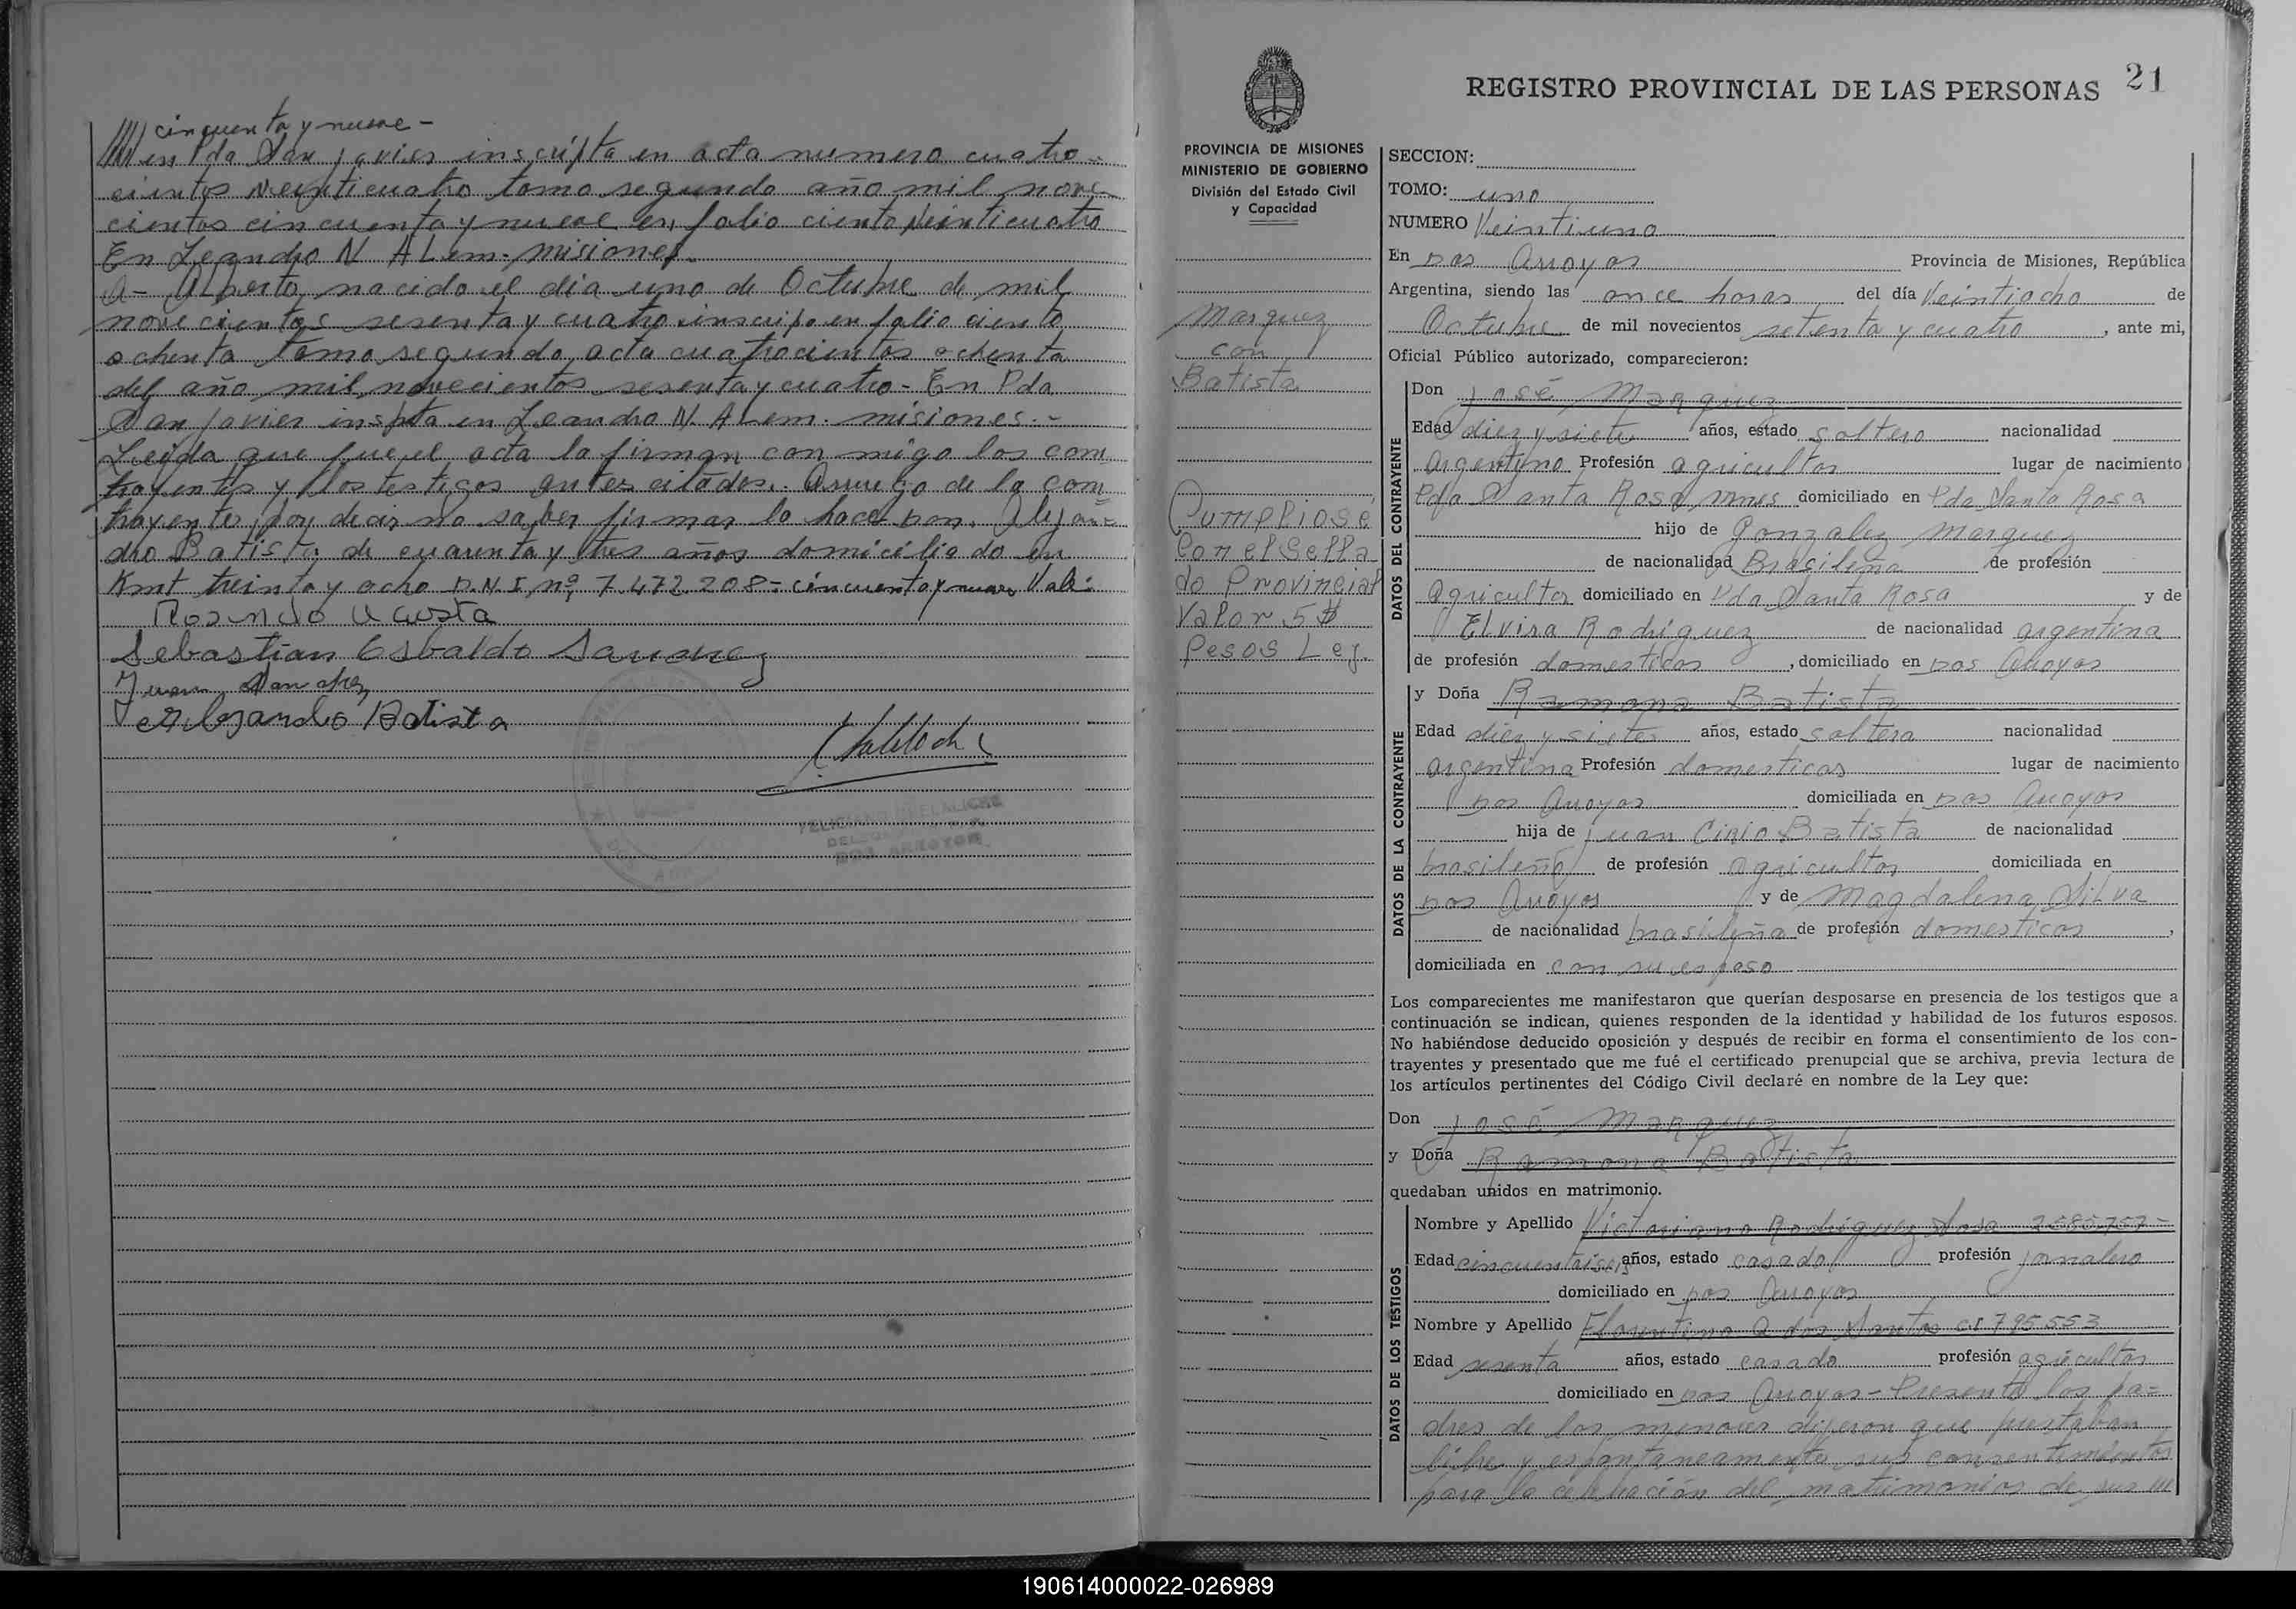 //// cincuenta y nueve -
//// en Pda San Javier inscripta en acta numero cuatro-
cientos veinticuatro tomo segundo año mil nove
cientos cincuenta y nueve en folio ciento veinticuatro
En Leandro N ALem. misiones.
A- Alberto, nacido el día uno de Octubre de mil
novecientos sesenta y cuatro inscripo en folio ciento
ochenta tomo segundo, acta cuatrocientos ochenta
del año mil novecientos sesenta y cuatro - En Pda
San Javier inspta en Leandro N. ALem. misiones.-
Leida que fue el acta la firman con migo los con
trayentes y los testigos antes citados. Aruego de la con
trayente por decir no saber firmar lo hace Don. Alejan=
dro Batista de cuarenta y tres años domiciliado en
Kmt treinta y ocho D.N.I. nº 7.472.208 = cincuenta y nueve Vale:
Rosendo Acosta
Sebastian Osbaldo Sanchez
Juan Sanchez
Alejandro Batista
FELICIANO
DOS ARROYOS
21
REGISTRO PROVINCIAL DE LAS PERSONAS
PROVINCIA DE MISIONES
MINISTERIO DE GOBIERNO
División del Estado Civil
y Capacidad
Marquez
con
Batista
Cumpliose
Con el Sella
do Provincial
Valor 5 $
Pesos Ley.
SECCION:
TOMO: uno
NUMERO Veintiuno
En Dos Arroyos Provincia de Misiones, República
Argentina, siendo las once horas del día Veintiocho de
Octubre de mil novecientos setenta y cuatro, ante mi,
Oficial Público autorizado, comparecieron:
DATOS DEL CONTRAYENTE
Don José Marquez
Edad diez y siete años, estado soltero nacionalidad
argentino Profesión agricultor lugar de nacimiento
Pda Santa Rosa, mnes domiciliado en Pda Santa Rosa
hijo de Gonzalez Marquez
de nacionalidad Brasileña de profesión
agricultor domiciliado en Pda Santa Rosa y de
Elvira Rodriguez de nacionalidad argentina
de profesión domesticas, domiciliado en Dos Arroyos
DATOS DE LA CONTRAYENTE
y Doña Ramona Batista
Edad diez y siete años, estado soltera nacionalidad
argentina Profesión domesticas lugar de nacimiento
Dos Arroyos domiciliada en Dos Arroyos
hija de Juan Cirio Batista de nacionalidad
brasileño de profesión agricultor domiciliada en
Dos Arroyos y de Magdalena Silva
de nacionalidad brasileña de profesión domesticas,
domiciliada en con su esposo
Los comparecientes me manifestaron que querían desposarse en presencia de los testigos que a
continuación se indican, quienes responden de la identidad y habilidad de los futuros esposos.
No habiéndose deducido oposición y después de recibir en forma el consentimiento de los con-
trayentes y presentado que me fué el certificado prenupcial que se archiva, previa lectura de
los artículos pertinentes del Código Civil declaré en nombre de la Ley que:
Don José Marquez
y Doña Ramona Batista
quedaban unidos en matrimonio.
DATOS DE LOS TESTIGOS
Nombre y Apellido Victoriano Rodriguez Dosa 7585757-
Edad cincuentiseis años, estado casado profesión jornalero
domiciliado en Dos Arroyos
Nombre y Apellido Florentino A dos Santos CI 795553
Edad sesenta años, estado casado profesión agricultor
domiciliado en Dos Arroyos - Presente los pa=
dres de los menores dijeron que prestaban
libre y espontaneamente sus consentimientos
para la celebración del matrimonio de sus ///
190614000022-026989